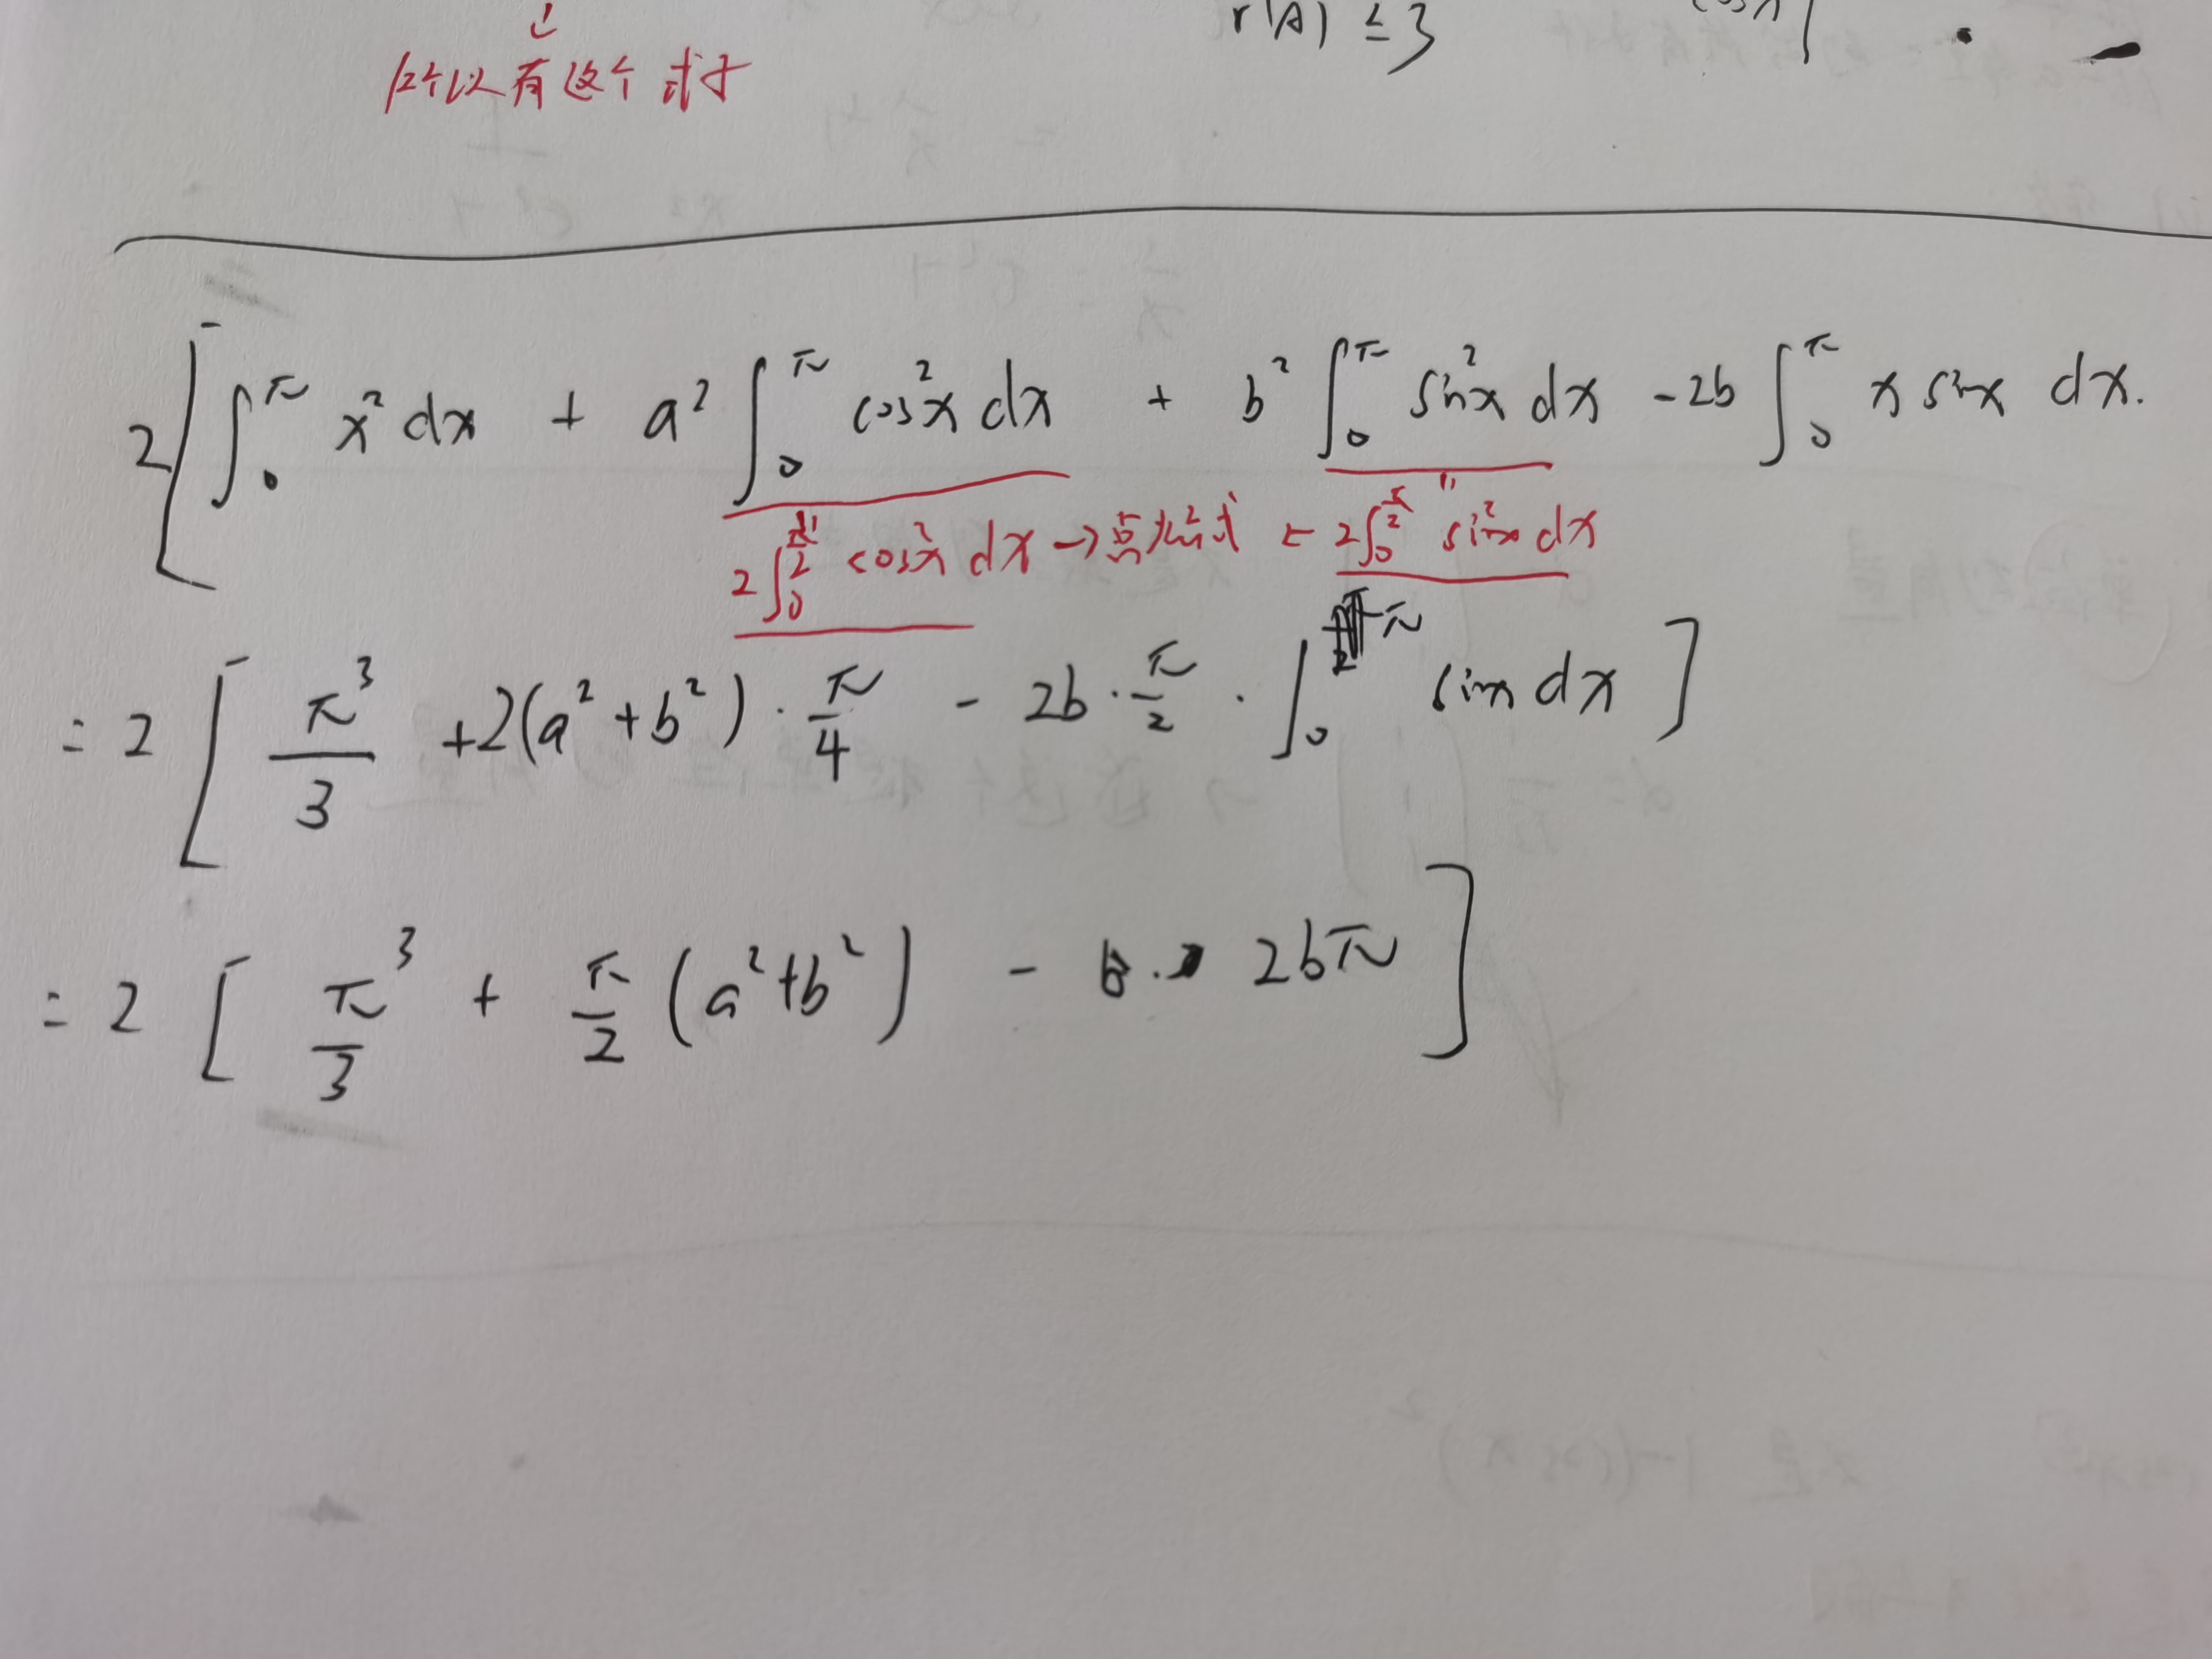 r(A) ≤ 3
所以有这个式子
2[∫₀^π x² dx + a² ∫₀^π cos²x dx + b² ∫₀^π sin²x dx - 2b ∫₀^π x sinx dx.
2∫₀^{π/2} cos²x dx → 点火公式 ← 2∫₀^{π/2} sin²x dx
= 2[π³/3 + 2(a²+b²)·π/4 - 2b·π/2·∫₀^π sinx dx]
= 2[π³/3 + π/2 (a²+b²) - 2bπ]